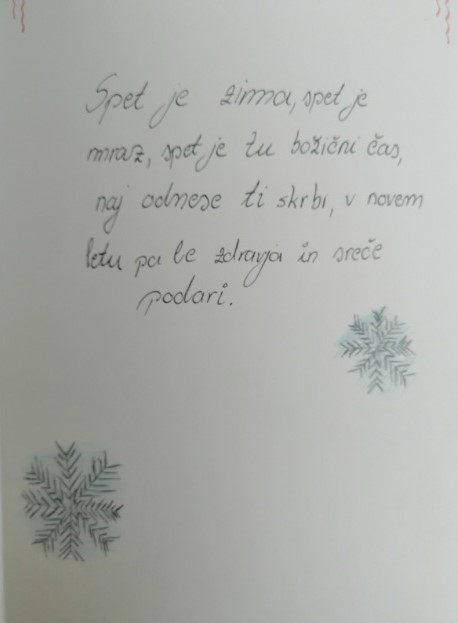 Spet je zima, spet je
mraz, spet je tu božični čas,
naj odnese ti skrbi, v novem
letu pa le zdravja in sreče
podari.